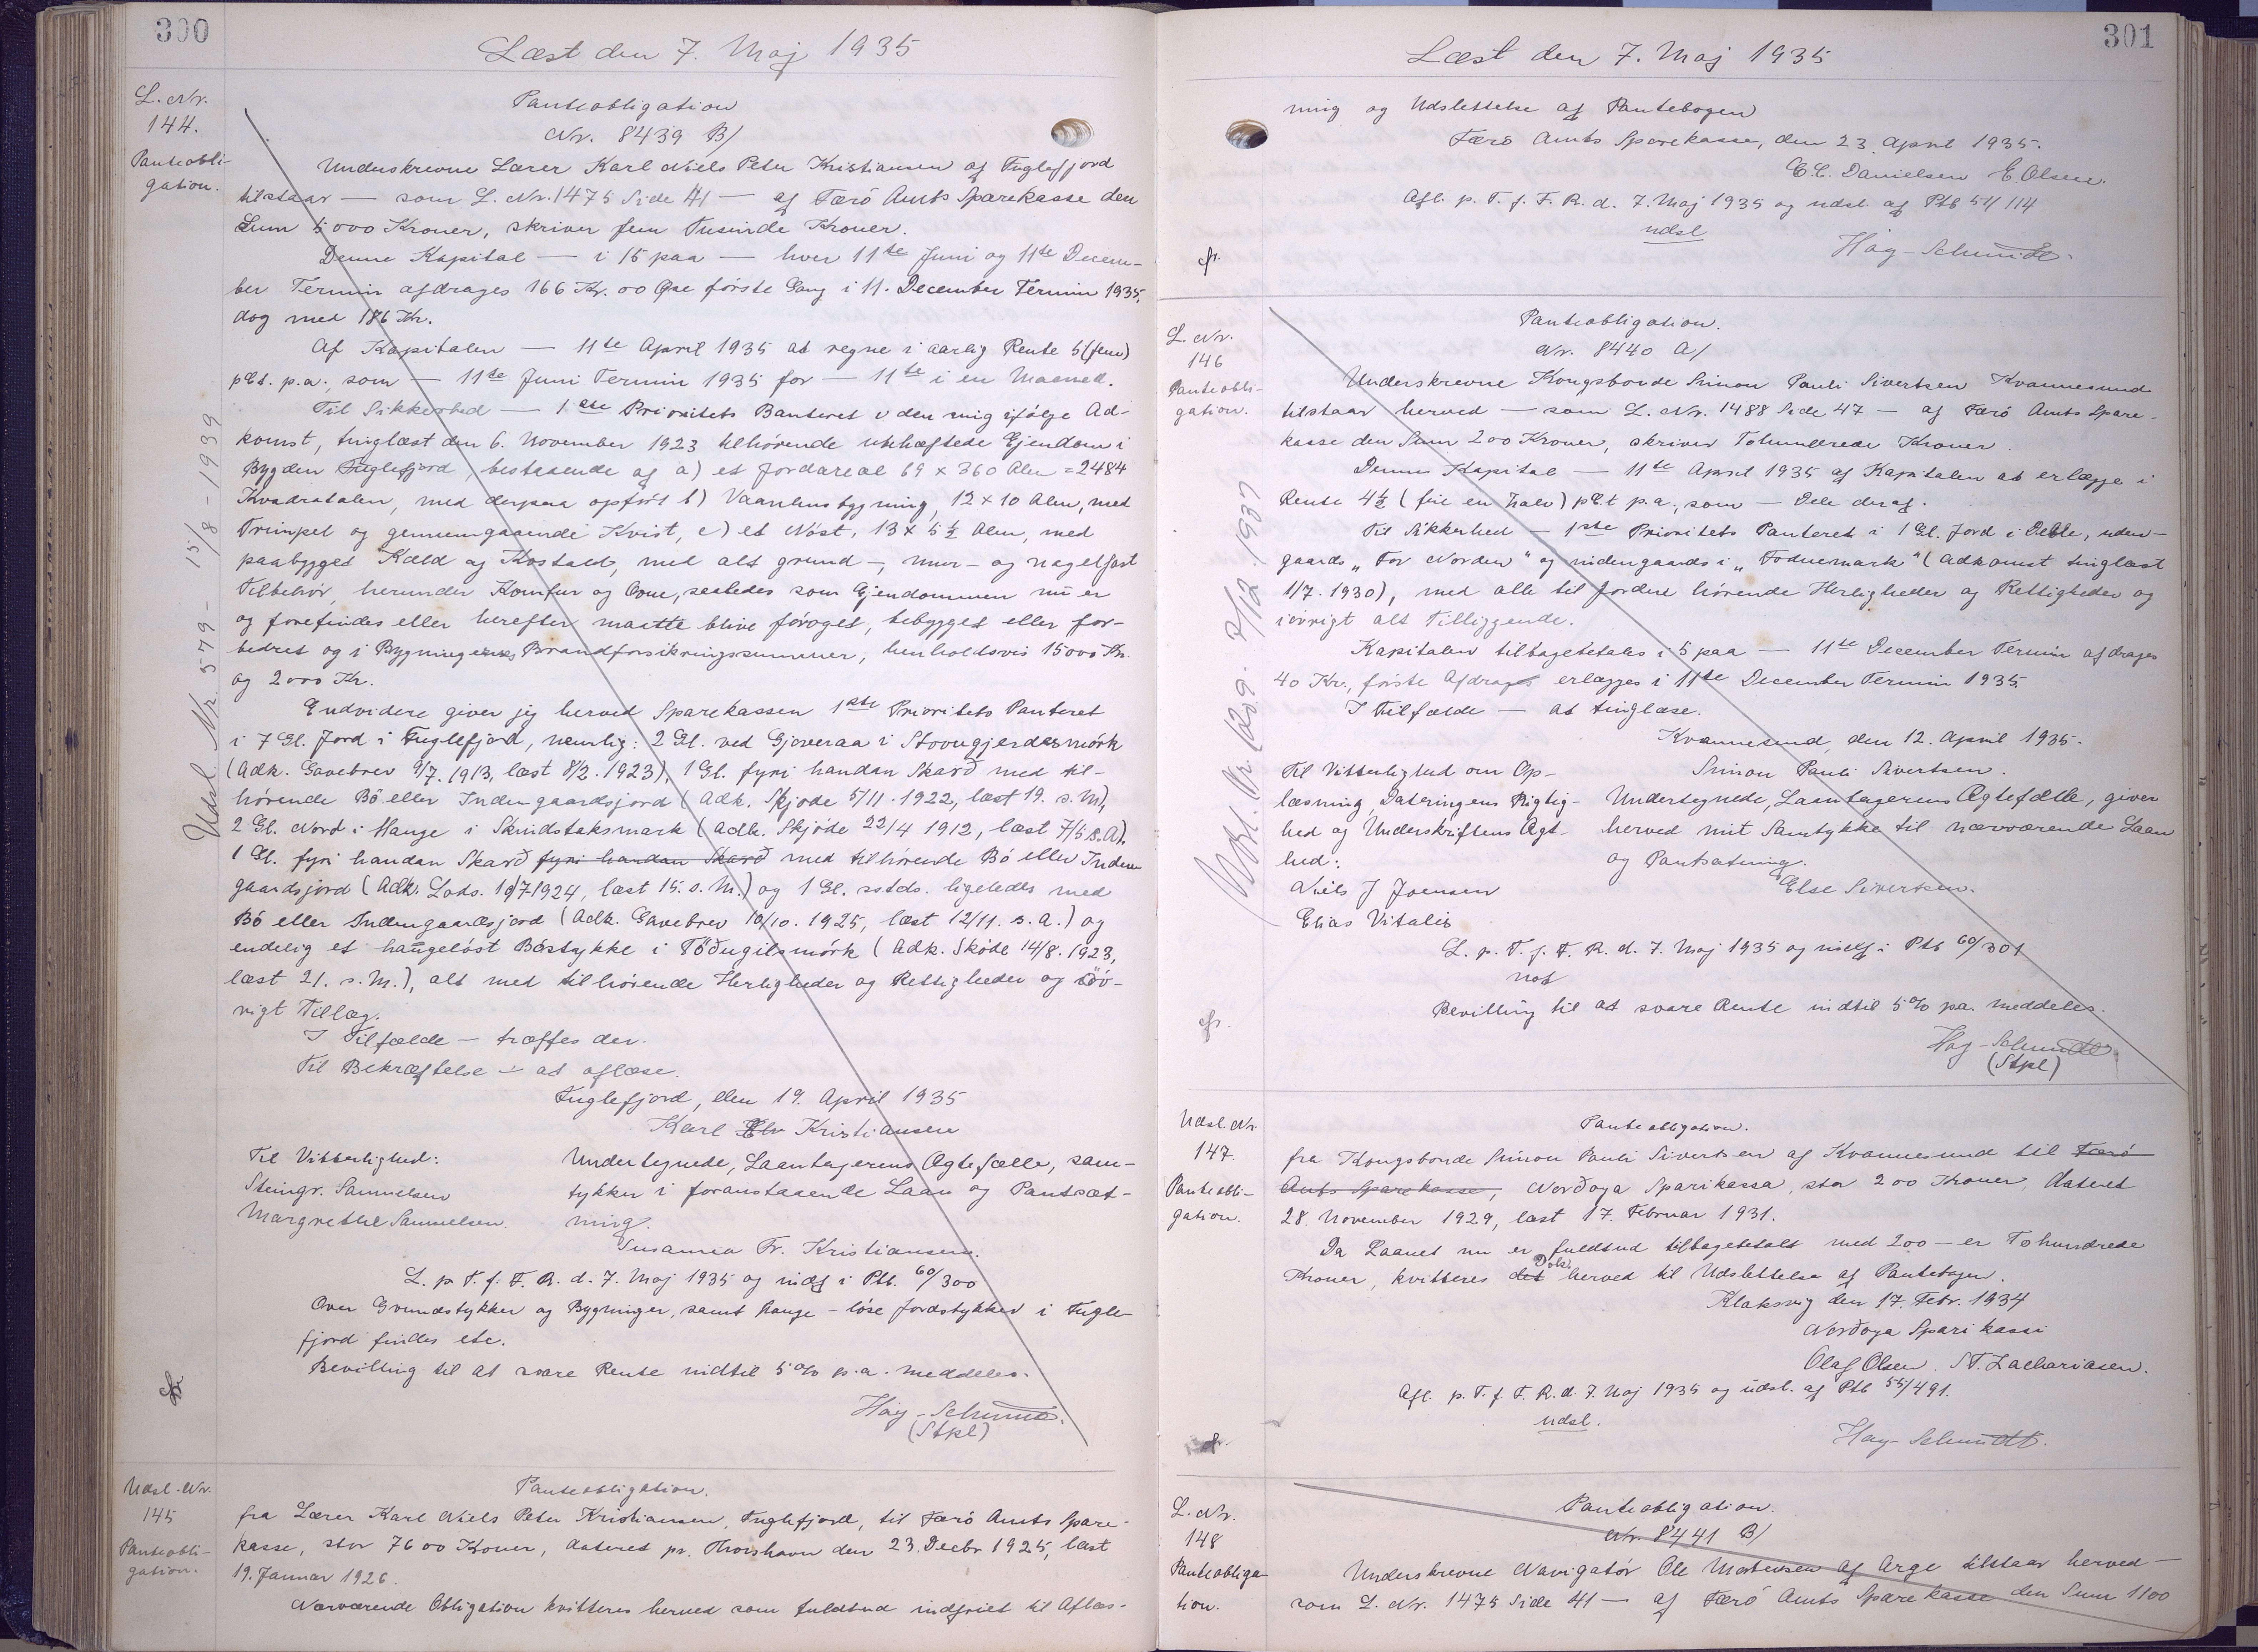 300
Læst den 7. Maj 1935
L. Nr.
144.
Panteobli-
gation.
Panteobligation
Nr. 8439 B/
Underskrevne Lærer Karl Niels Peter Kristiansen af Fuglefjord
tilstaar — som L. Nr. 1475 Side 41 — af Færö Amts Sparekasse den
Sum 5000 Kroner, skriver fem Tusinde Kroner.
Denne Kapital — i 15 paa — hver 11te Juni og 11te Decem-
ber Termin afdrages 166 Kr. 00 Øre förste Gang i 11. December Termin 1935,
dog med 186 Kr.
Af Kapitalen — 11te April 1935 at regne i aarlig Rente 5 (fem)
pCt. p.a., som — 11te Juni Termin 1935 for — 11te i en Maaned.
Til Sikkerhed — 1ste Prioritets Panteret i den mig ifölge Ad-
komst, tinglæst den 6. November 1923 tilhörende ubehæftede Ejendom i
Bygden Fuglefjord, bestaaende af a) et Jordareal 69 x 360 Alen = 2484
Kvadratalen, med derpaa opfört b) Vaaningsbygning, 12 x 10 Alen, med
Trimpel og gennemgaaende Kvist, c) et Nöst, 13 x 5½ Alen, med
paabygget Kæld og Kostald, med alt grund-, mur- og nagelfast
Tilbehör, herunder Komfur og Ovne, saaledes som Ejendommen nu er
og forefindes eller herefter maatte blive foröget, bebygget eller for-
bedret og i Bygningernes Brandforsikringssummer, henholdsvis 15000 Kr.
og 2000 Kr.
Endvidere giver jeg herved Sparekassen 1ste Prioritets Panteret
i 7 Gl. Jord i Fuglefjord, nemlig: 2 Gl. ved Gjoveraa i Stovugjerdesmörk
(Adk. Gavebrev 9/7. 1913, læst 8/2. 1923), 1 Gl. fyri handan Skarð med til-
hörende Bö eller Indengaardsjord (Adk. Skjöde 5/11. 1922, læst 19. s. M),
2 Gl. Nord i Hauge i Skridstaksmark (Adk. Skjöde 22/4 1912, læst 7/5 s.A),
1 Gl. fyri handan Skarð fyri handan Skarð med tilhörende Bö eller Inden-
gaardsjord (Adk. Lods. 10/7-1924, læst 15. s. M.) og 1 Gl. sstds. ligeledes med
Bö eller Indengaardsjord (Adk. Gavebrev 10/10. 1925, læst 12/11. s. a.) og
endelig et haugelöst Böstykke i Töðugilsmörk (Adk. Sköde 14/8. 1923,
læst 21. s. M.), alt med tilhörende Herligheder og Rettigheder og iöv-
rigt Tillæg.
I Tilfælde — træffes der.
Til Bekræftelse — at aflæse.
Fuglefjord, den 19. April 1935
Karl Kristiansen
Til Vitterlighed:
Steingr. Samuelsen
Margrethe Samuelsen.
Undertegnede, Laantagerens Ægtefælle, sam-
tykker i foranstaaende Laan og Pantsæt-
ning.
Susanna Fr. Kristiansen.
L. p. T. f. F. R. d. 7. Maj 1935 og indf i Ptb. 60/300
Over Grundstykker og Bygninger, samt hauge-löse Jordstykker i Fugle-
fjord findes etc.
Bevilling til at svare Rente indtil 5% p.a. meddeles.
Hay-Schmidt.
(Stpl)
Udsl. Nr. 579 - 15/8 - 1939
Udsl. Nr.
145
Panteobli-
gation.
Panteobligation.
fra Lærer Karl Niels Peter Kristiansen, Fuglefjord, til Færö Amts Spare-
kasse, stor 7600 Kroner, dateret pr. Thorshavn den 23. Decbr 1925, læst
19. Januar 1926.
Nærværende Obligation kvitteres herved som fuldtud indfriet til Aflæs-
301
Læst den 7. Maj 1935
ning og Udslettelse af Pantebogen
Færö Amts Sparekasse, den 23. April 1935.
C. C. Danielsen E. Olsen.
Afl. p. T. f. F. R. d. 7. Maj 1935 og udsl. af Ptb 54/114
udsl
Hay-Schmidt.
L. Nr.
146
Panteobli-
gation.
Panteobligation.
Nr. 8440 A/
Underskrevne Kongsbonde Simon Pauli Sivertsen Kvannesund
tilstaar herved — som L. Nr. 1488 Side 47 — af Færö Amts Spare-
kasse den Sum 200 Kroner, skriver Tohundrede Kroner.
Denne Kapital — 11te April 1935 af Kapitalen at erlægge i
Rente 4½ (fire en halv) pCt p.a., som — Dele deraf.
Til Sikkerhed — 1ste Prioritets Panteret i 1 Gl. Jord i Deble, uden-
gaards „For Norden" og indengaards i „Toduemark" (Adkomst tinglæst
1/7. 1930), med alle til Jorden hörende Herligheder og Rettigheder og
iövrigt alt Tilliggende.
Kapitalen tilbagebetales i 5 paa — 11te December Termin afdrages
40 Kr., förste Afdrag erlægges i 11te December Termin 1935.
I Tilfælde — at tinglæse.
Kvannesund, den 12. April 1935.
Simon Pauli Sivertsen.
Til Vitterlighed om Op-
læsning, Dateringens Rigtig-
hed og Underskriftens Ægt-
hed:
Niels J Joensen
Elias Vitalis
Undertegnede, Laantagerens Ægtefælle, giver
herved mit Samtykke til nærværende Laan
og Pantsætning.
Else Sivertsen.
L. p. T. f. F. R. d. 7. Maj 1935 og indf i Ptb 60/301
not
Bevilling til at svare Rente indtil 5% pa. meddeles.
Hay-Schmidt
(Stpl)
Udsl. Nr
147.
Panteobli-
gation.
Panteobligation.
fra Kongsbonde Simon Pauli Sivertsen af Kvannesund til Færö
Amts Sparekasse, Norðoya Sparikassa, stor 200 Kroner, dateret
28. November 1929, læst 17. Februar 1931.
Da Laanet nu er fuldtud tilbagebetalt med 200 — er Tohundrede
Kroner, kvitteres det herved til Udslettelse af Pantebogen.
Klaksvig den 17. Febr. 1934
Norðoya Sparikassi
Olaf Olsen. S.F. Zachariasen.
Afl. p. T. f. F. R. d. 7. Maj 1935 og udsl. af Ptb 55/491.
udsl.
Hay-Schmidt.
L. Nr.
148
Panteobliga-
tion.
Panteobligation.
Nr. 8441 B/
Underskrevne Navigatör Ole Mortensen af Arge tilstaar herved —
som L. Nr. 1475 Side 41 — af Færö Amts Sparekasse den Sum 1100